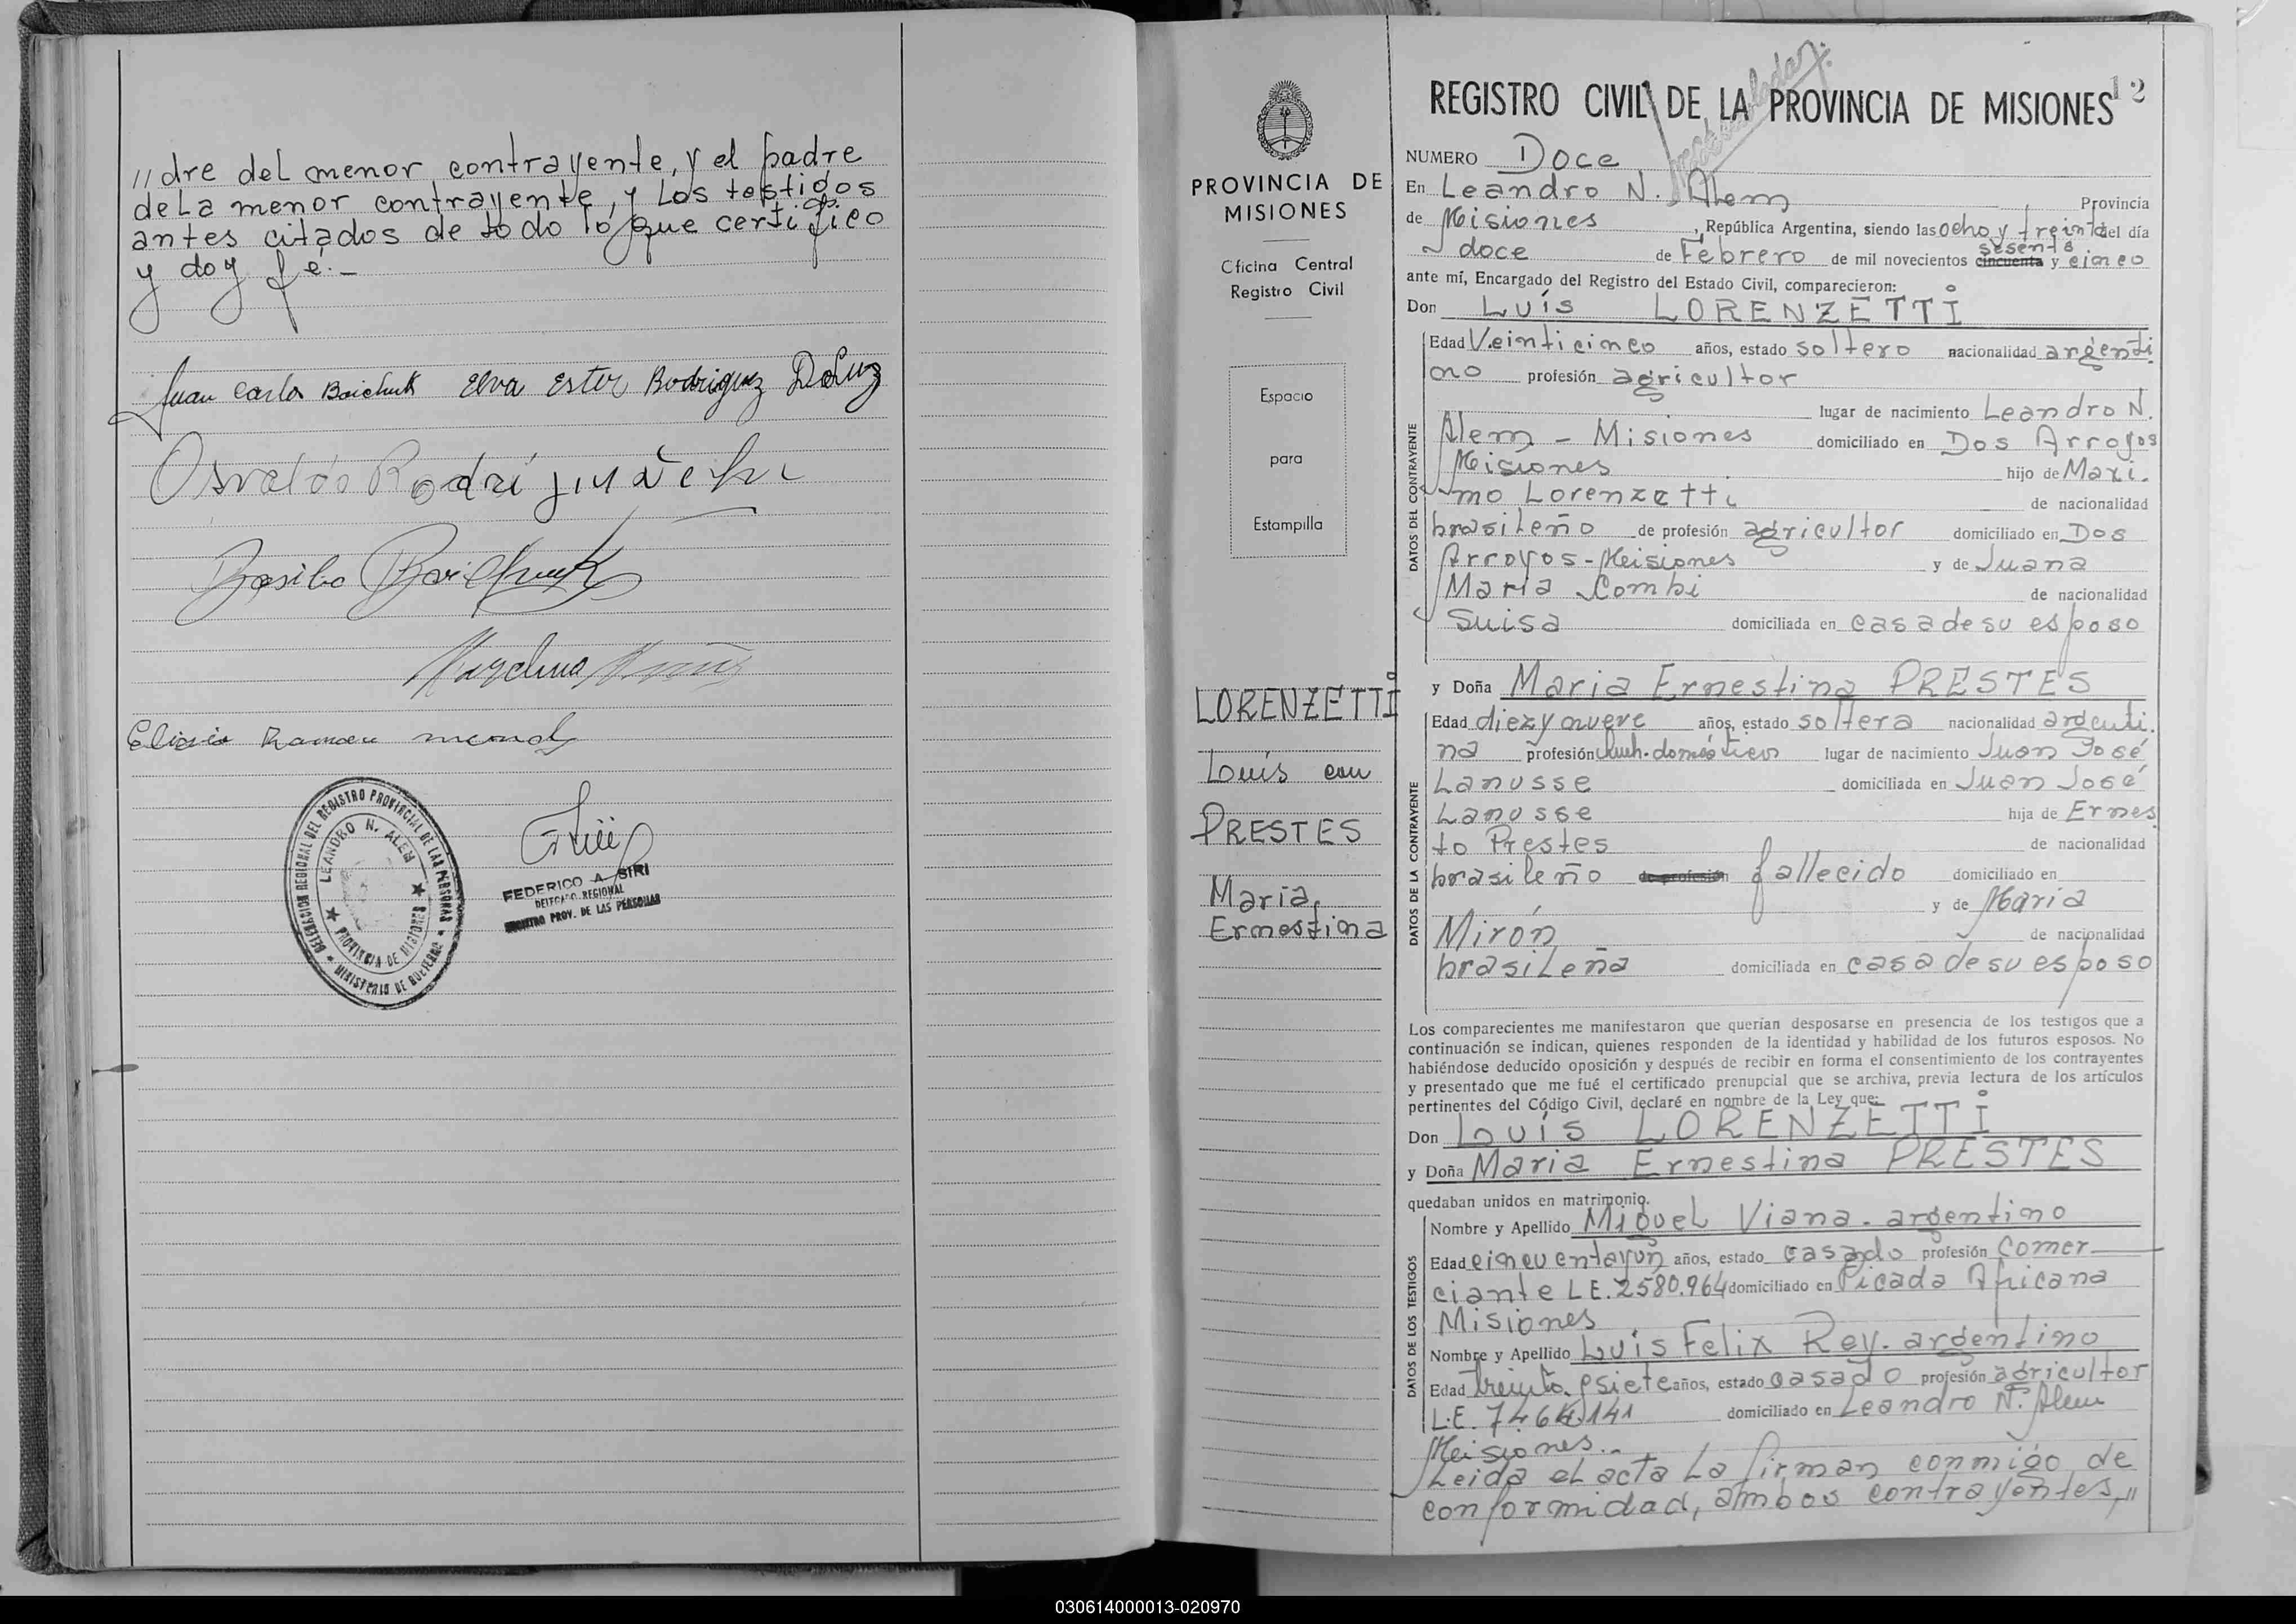 //dre del menor contrayente, y el padre
de La menor contrayente, y Los testigos
antes citados de todo lo que certifico
y doy fé.-
Juan Carlos Boichuk Elva Ester Rodriguez DaLuz
Osvaldo
Basilio
Ramon
DELEGACION REGIONAL DEL REGISTRO PROVINCIAL DE LAS PERSONAS
LEANDRO N. ALEM
PROVINCIA DE MISIONES
MINISTERIO DE GOBIERNO
FEDERICO A. SIRI
DELEGADO REGIONAL
REGISTRO PROV. DE LAS PERSONAS
PROVINCIA DE
MISIONES
Oficina Central
Registro Civil
Espacio
para
Estampilla
LORENZETTI
Louis con
PRESTES
Maria
Ernestina
12
REGISTRO CIVIL DE LA PROVINCIA DE MISIONES
NUMERO Doce
En Leandro N. Alem Provincia
de Misiones, República Argentina, siendo las ocho y treinta del día
doce de Febrero de mil novecientos cincuenta sesenta y cinco
ante mí, Encargado del Registro del Estado Civil, comparecieron:
Don Luís LORENZETTI
DATOS DEL CONTRAYENTE
Edad Veinticinco años, estado soltero nacionalidad argenti
no profesión agricultor
lugar de nacimiento Leandro N.
Alem - Misiones domiciliado en Dos Arroyos
Misiones hijo de Maxi-
mo Lorenzetti de nacionalidad
brasileño de profesión agricultor domiciliado en Dos
Arroyos - Misiones y de Juana
Maria Combi de nacionalidad
Suisa domiciliada en casa de su esposo
y Doña Maria Ernestina PRESTES
DATOS DE LA CONTRAYENTE
Edad diez y nueve años, estado soltera nacionalidad argenti.
na profesión lugar de nacimiento Juan José
Lanusse domiciliada en Juan José
Lanusse hija de Ernes
to Prestes de nacionalidad
brasileño de profesión fallecido domiciliado en
y de Maria
Mirón de nacionalidad
brasileña domiciliada en casa de su esposo
Los comparecientes me manifestaron que querían desposarse en presencia de los testigos que a
continuación se indican, quienes responden de la identidad y habilidad de los futuros esposos. No
habiéndose deducido oposición y después de recibir en forma el consentimiento de los contrayentes
y presentado que me fué el certificado prenupcial que se archiva, previa lectura de los artículos
pertinentes del Código Civil, declaré en nombre de la Ley que:
Don Luís LORENZETTI
y Doña Maria Ernestina PRESTES
quedaban unidos en matrimonio.
DATOS DE LOS TESTIGOS
Nombre y Apellido Miguel Viana - argentino
Edad cincuentayún años, estado casado profesión Comer
ciante L.E. 2580.964 domiciliado en Picada Africana
Misiones
Nombre y Apellido Luis Felix Rey. argentino
Edad treinta y siete años, estado casado profesión agricultor
L.E. 7464.141 domiciliado en Leandro N. Alem
Misiones.-
Leida el acta La firman conmigo de
conformidad, ambos contrayentes,//
030614000013-020970